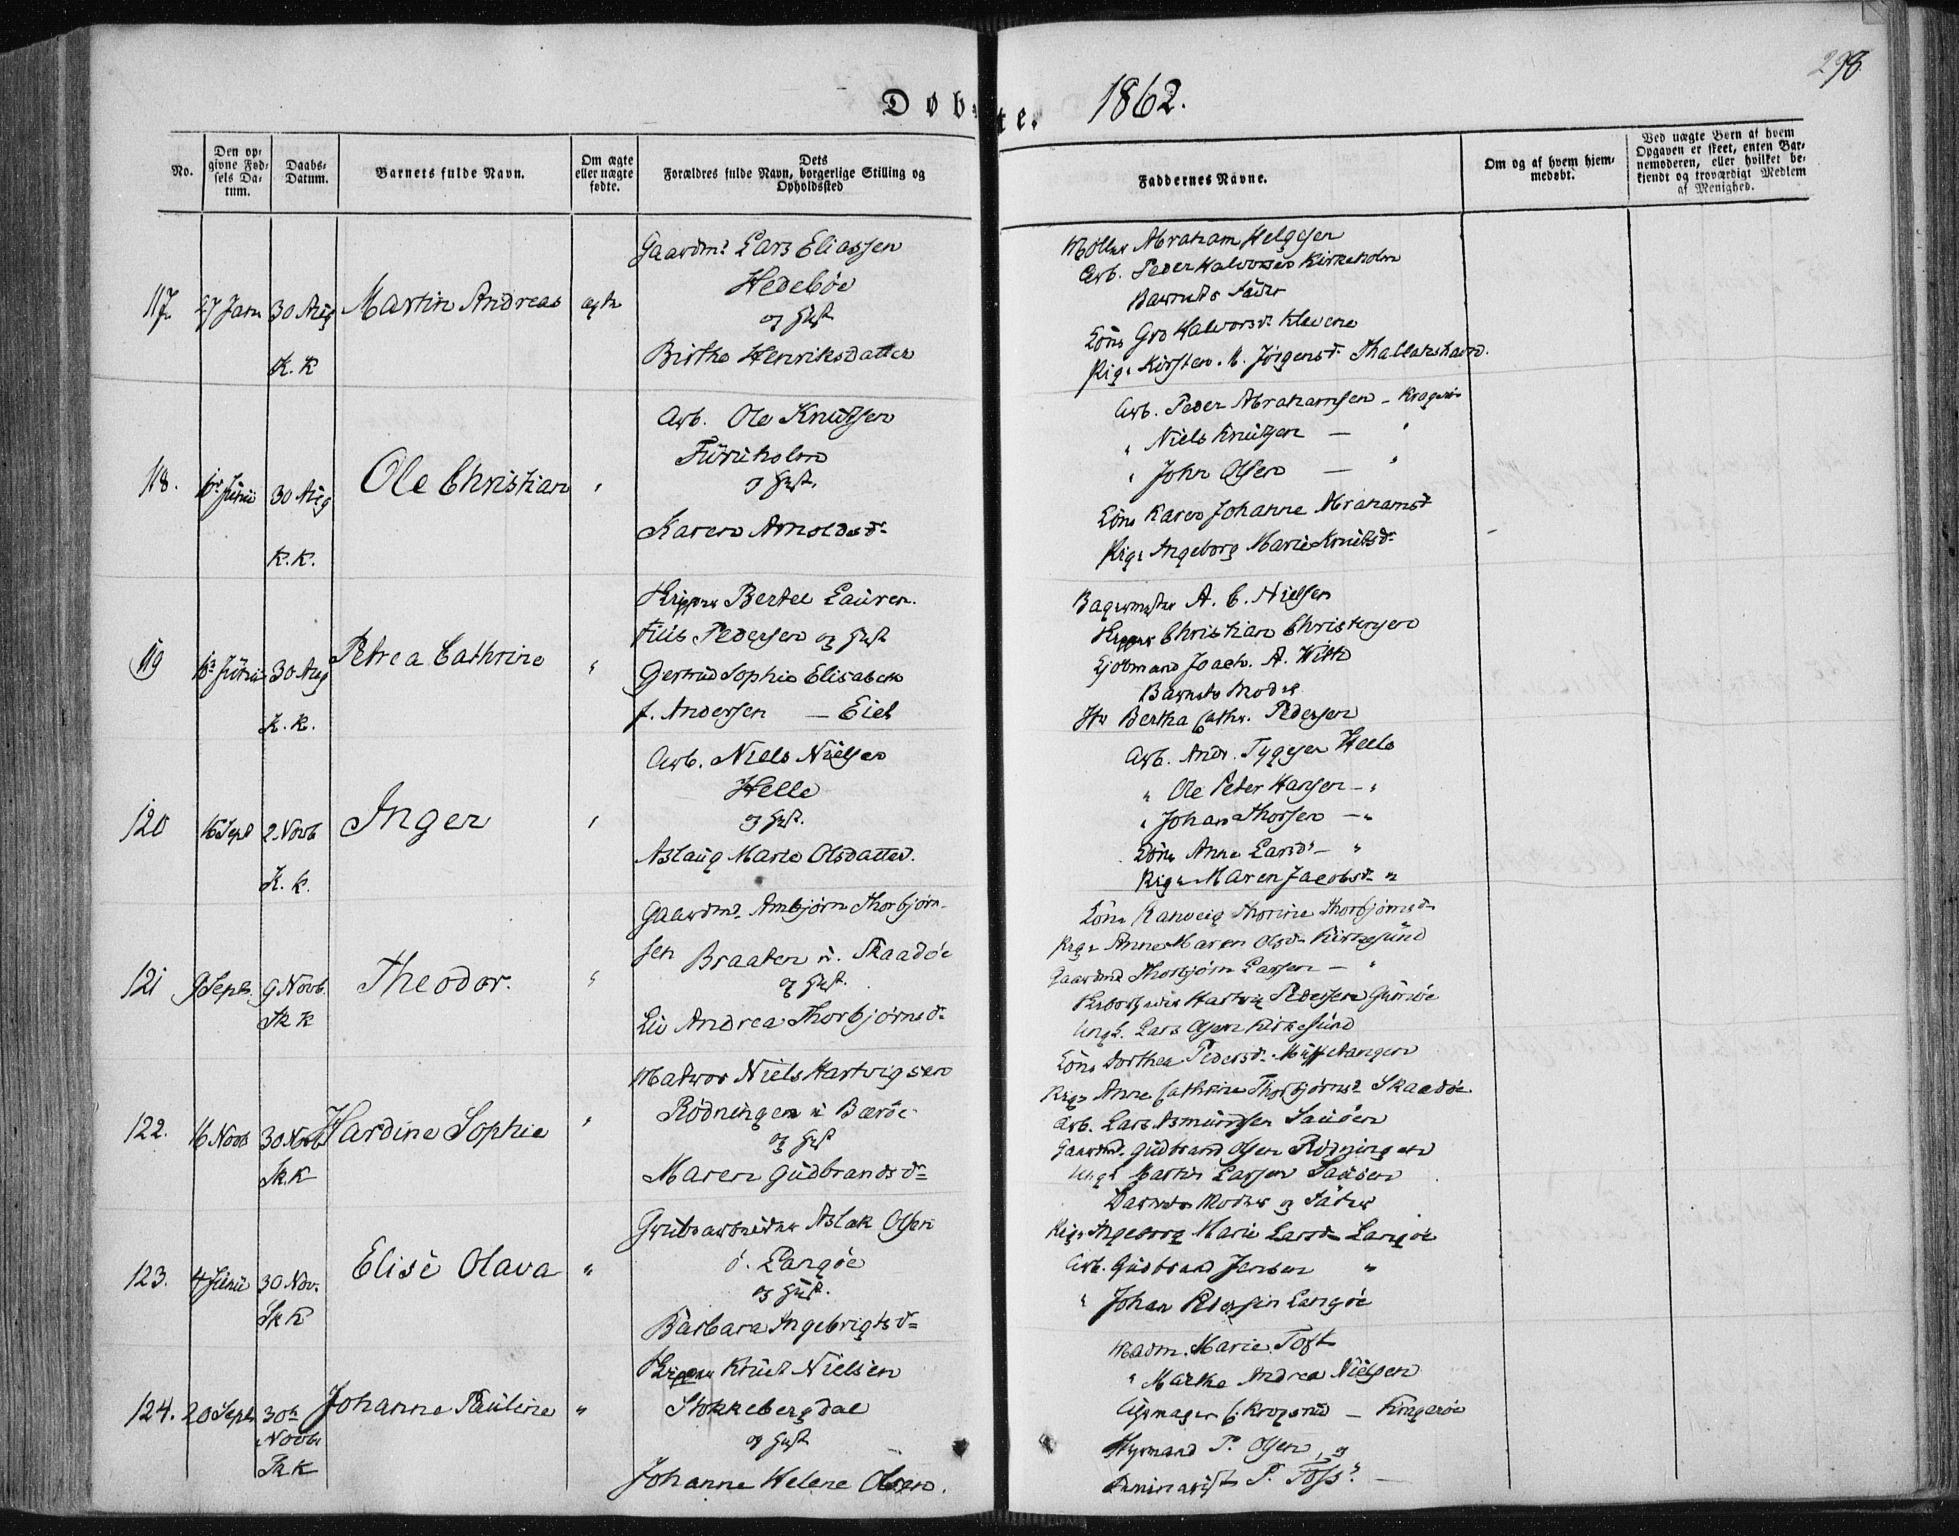 298
Døbte. 1862.
No.
Den opgivne Fødsels Datum.
Daabs-Datum.
Barnets fulde Navn.
Om ægte eller uægte fødte.
Dets Forældres fulde Navn, borgerlige Stilling og Opholdssted
Faddernes Navne.
Om og af hvem hjemmedøbt.
Ved uægte Børn af hvem Opgaven er skeet, enten Barnemoderen, eller hvilket bekjendt og troværdigt Medlem af Menighed.
117. 27 Janu 30 Aug K. K Martin Andreas ægte
Gaardm. Lars Eliassen
Hedebøe
og Hust
Birthe Henriksdatter
Møller Abraham Helgesen
Arb. Peder Halvorsen Kirkeholm
Barnets Fader
Kone Gro Halvorsd. Klevene
Pige Kirsten M. Jørgensd. Thallakshavn.
118. Junii 30 Aug K. K. Ole Christian "
Arb. Ole Knutsen
Furuholm
og Hust.
Karen Arnoldsd.
Arb. Peder Abrahamsen - Kragerø
" Niels Knutsen — "
" John Olsen — "
Kone Karen Johanne Abrahamsd
Pige Ingeborg Marie Knutsd.
119 Junii 30 Aug K. K. Petrea Cathrine "
Skipper Bertel Lauren-
tius Pedersen og Hust
Gertrud Sophie Elisabeth
f. Andersen — Eiet
Bagermester A. C. Nielsen
Skipper Christian Christensen
Barnets Moder
Bertha Cathr. Pedersen
120 16 Sept 2 Novb K. K. Inger "
Arb. Niels Nielsen
Helle
og Hust.
Aslaug Marie Olsdatter.
Arb. Andr. Tygesen Helle
" Ole Peter Hansen — "
" Johan Thorsen — "
Kone Anne Larsd. — "
Pige Maren Jacobsd. "
121 9 Sept. 9 Novb. Sk K Theodor. "
Gaardm. Anbjørn Thorbjørn-
sen Braaten i Skaadøe
og Hust.
Liv Andrea Thorbjørnsd.
Kone Ranveig Thorine Thorbjørnsd.
Pige Anne Maren Olsd. Kirkesund
Gaardmd Thorbjørn Larsen — "
Hartvig Pedersen
Ungk. Lars Olsen Kirkesund
122. 16 Novb 30 Novb Sk. K Hardine Sophie "
Matros Niels Hartvigsen
Rødningen i Bærøe
og Hust
Maren Gudbrandsd.
Kone Dorthea Pedersd.
Pige Anne Cathrine Thorbjørnsd. Skaadøe
Arb. Lars Asmundsen Sauøen
Gaardmd. Gudbrand Olsen Rødningen
Ungk Martin Larsen Sauøen
Barnets Moder og Fader
123. 4 Junii 30 Nov. Sk K Elise Olava "
Grubearbeider Aslak Olsen
Langøe
og Hust.
Barbara Ingebrigtsd.
Pige Ingeborg Marie Larsd. Langøe
Arb. Gudbrand Jensen "
" Johan Pedersen Langøe
124. 20 Sept. 30te Novbr Sk K Johanne Pauline "
Skipper Knut Nielsen
Stokkebergdal
og Hust
Johanne Helene Olsen.
Madm. Marie Toft
" Marthe Andrea Nielsen
— Kragerøe
Styrmand P. Olsen, og
P. Foss. —